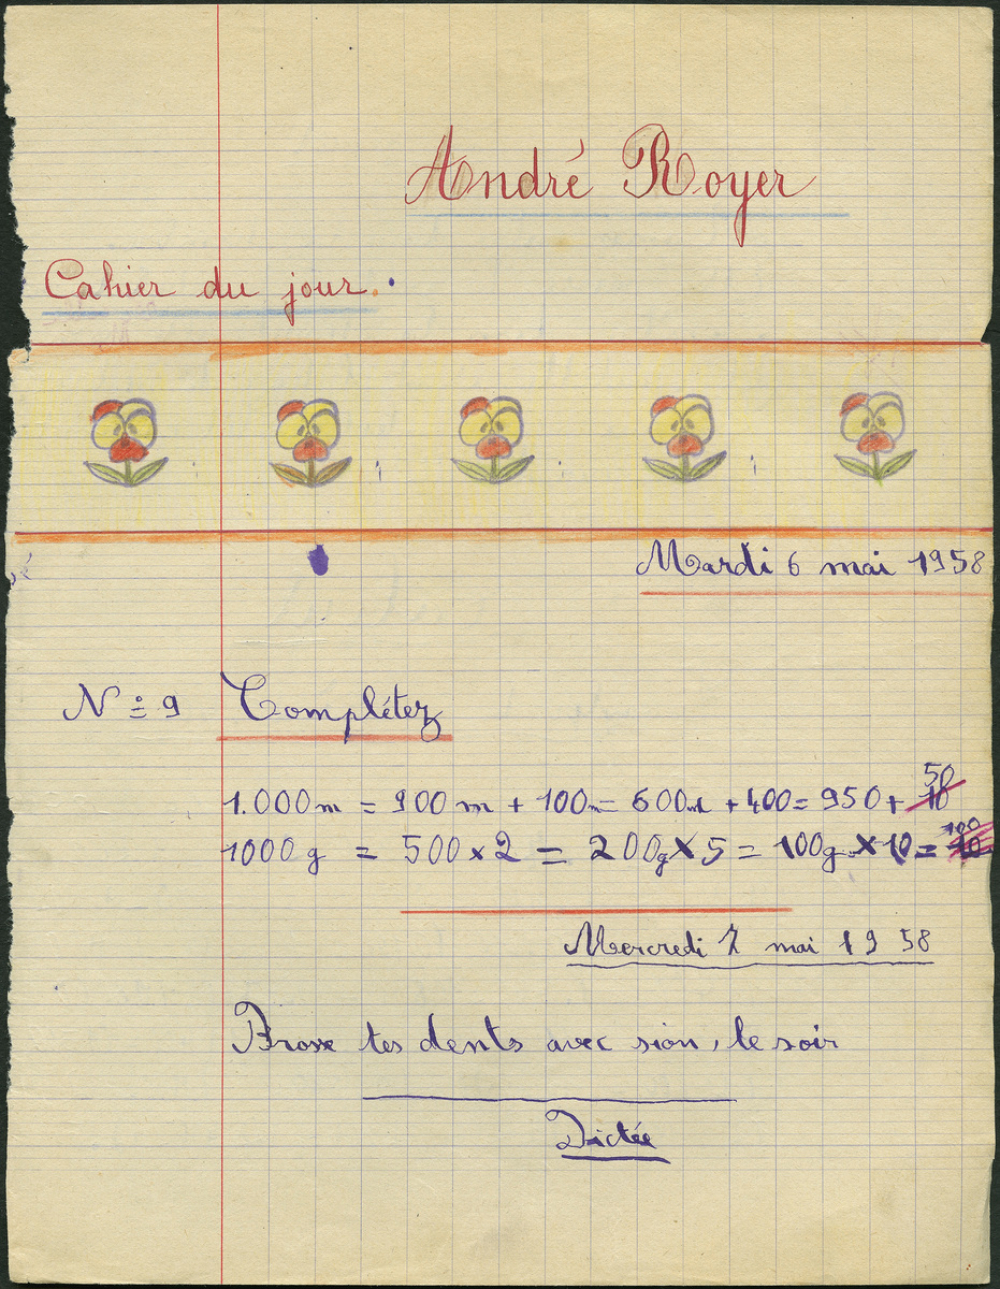 André Royer
Cahier du jour.
Mardi 6 mai 1958
N° 9 Complétez
50
1.000m = 900m + 100m = 600m + 400 = 950 + 10
100
1000g = 500 x 2 = 200g x 5 = 100g x 10 =
Mercredi 7 mai 1958
Brosse tes dents avec sion, le soir
Dictée